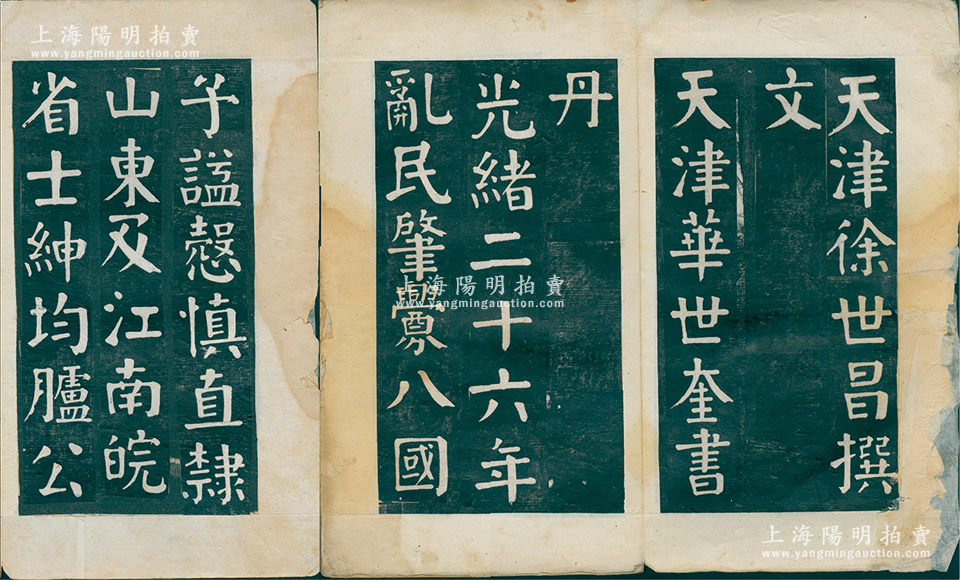 天津徐世昌撰
文
天津華世奎書
丹
光緒二十六年
亂民肇釁八國
予諡愨慎直隸
山東及江南皖
省士紳均臚公
上海陽明拍賣
www.yangmingauction.com
上海陽明拍賣
www.yangmingauction.com
上海陽明拍賣
www.yangmingauction.com